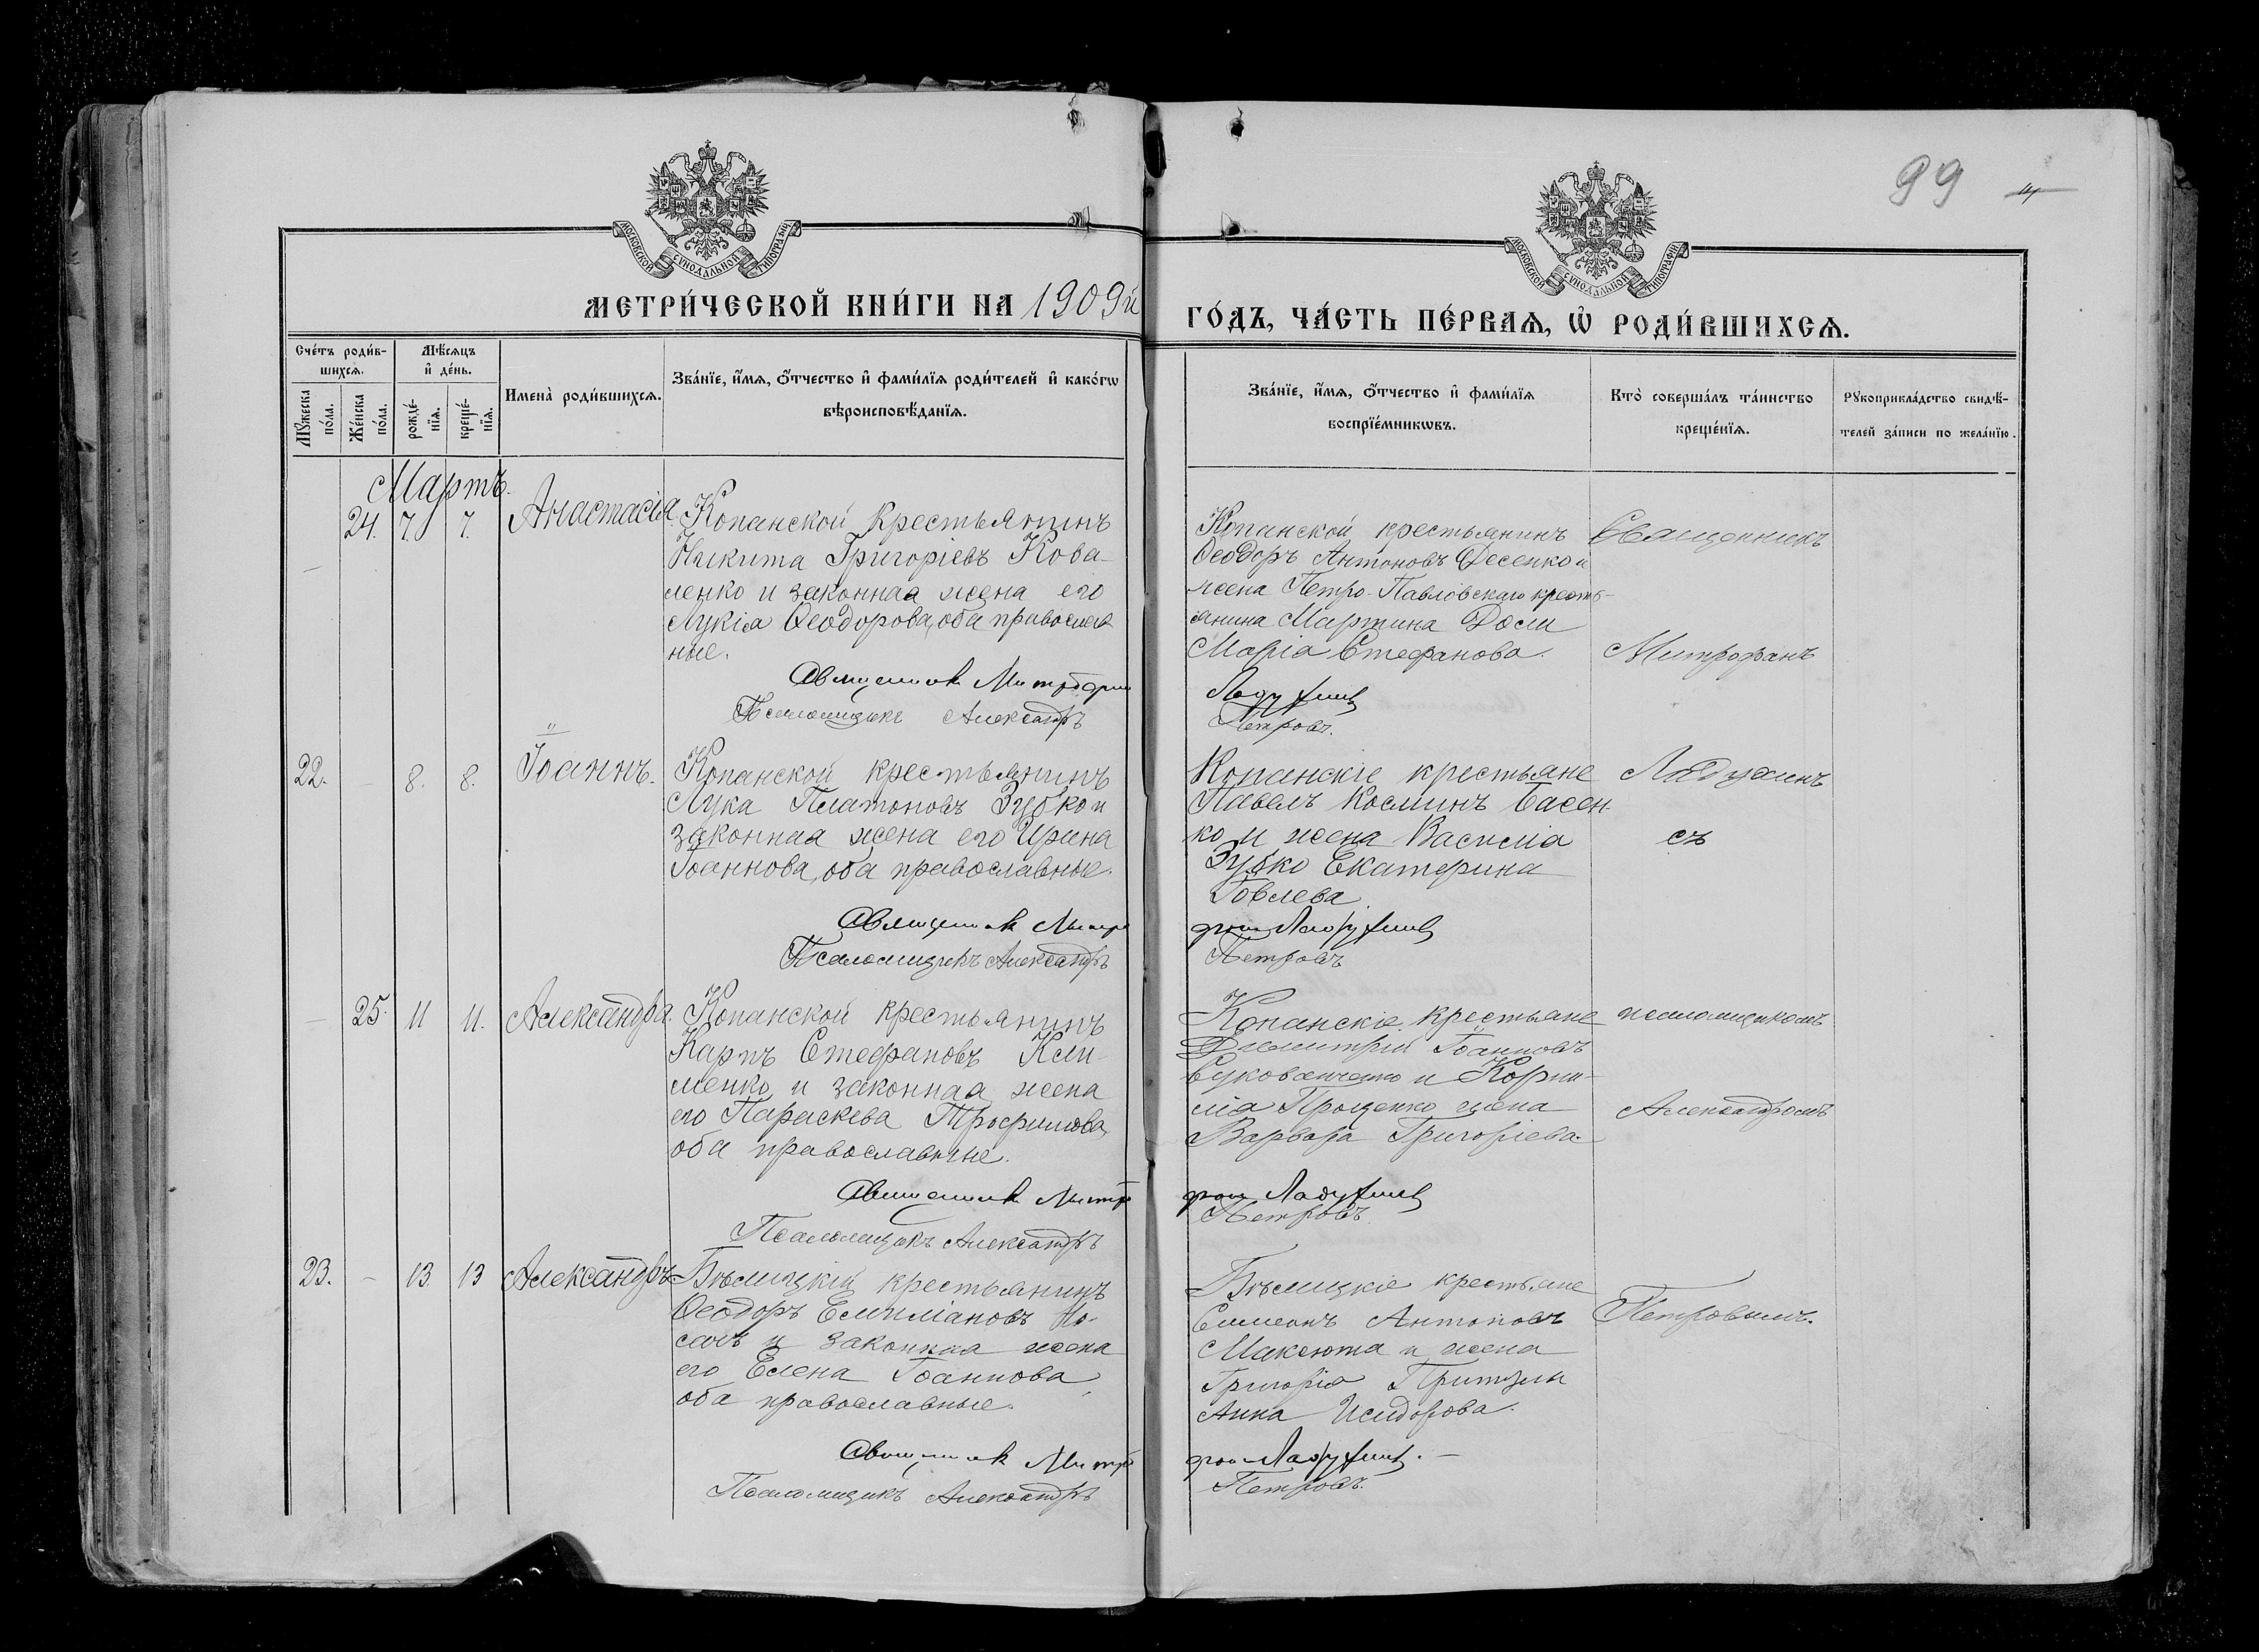 99
МОСКОВСКОЙ СУНОДАЛЬНОЙ ТИПОГРАФІИ
МОСКОВСКОЙ СУНОДАЛЬНОЙ ТИПОГРАФІИ
МЕТРИ́ЧЕСКОЙ КНИ́ГИ НА 1909й
ГО́ДЪ, ЧА́СТЬ ПЕ́РВАѦ, Ѡ҆ РОДИ́ВШИХСѦ.
Сче́тъ роди́в-
шихсѧ.
Мꙋ́жеска по́ла.
Же́нска по́ла.
Мѣ́сѧцъ
и҆ де́нь.
рожде́-
нїѧ.
креще́-
нїѧ.
Имена̀ роди́вшихсѧ.
Зва́нїе, и҆́мѧ, ѻ҆́тчество и҆ фами́лїѧ роди́телей и҆ како́гѡ
вѣроисповѣ́данїѧ.
Зва́нїе, и҆́мѧ, ѻ҆́тчество и҆ фами́лїѧ
воспрїе́мникѡвъ.
Кто̀ соверша́лъ та́инство
креще́нїѧ.
Рꙋкоприкла́дство свидѣ́-
телей за́писи по жела́нїю.
Мартъ.
24. 7. 7. Анастасія
Копанской крестьянинъ
Никита Григоріевъ Кова-
ленко и законная жена его
Лукія Ѳеодорова, оба православ
ные.
Священник Митрофан
Псаломщикъ Александръ
Копанской крестьянинъ
Ѳеодоръ Антоновъ Десенко и
жена Петро-Павловскаго кресть-
янина Мартина
Марія Стефанова.
Ладухинъ
Петровъ.
Священникъ
Митрофанъ
22. – 8. 8. Іоаннъ.
Копанской крестьянинъ
Лука Платоновъ Зубко и
законная жена его Ирина
Іоаннова, оба православные.
Священник Митро
Псаломщикъ Александръ
Копанскіе крестьяне
Павелъ Косминъ Басен-
ко и жена Василія
Зубко Екатерина
Іовлева.
фан Ладухинъ
Петровъ
Ладухинъ
съ
– 25. 11 11. Александра.
Копанской крестьянинъ
Карпъ Стефановъ Кли-
менко и законная жена
его Параскева Трофимова,
оба православные.
Священник Митро
Псаломщикъ Александръ
Копанскіе крестьяне
Димитрій Іоанновъ
и Корни-
лія Проценко жена
Варвара Григоріева.
фан Ладухинъ
Петровъ.
псаломщикомъ
Александромъ
23. – 13 13 Александръ
Бѣлицкій крестьянинъ
Ѳеодоръ Емиліановъ Но-
сачъ и законная жена
его Елена Іоаннова,
оба православные.
Священник Митро
Псаломщикъ Александръ
Бѣлицкіе крестьяне
Симеонъ Антоновъ
Максюта и жена
Григорія Притулы
Анна Исидорова.
фан Ладухинъ.
Петровъ.
Петровымъ.